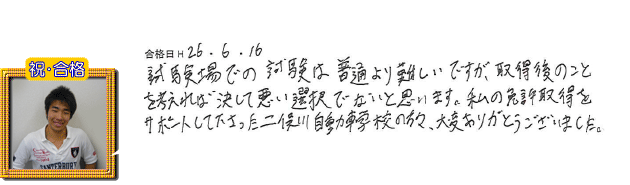 祝・合格
合格日 H 26.6.16
試験場での試験は普通より難しいですが、取得後のこと
を考えれば決して悪い選択でないと思います。私の免許取得を
サポートして下さった二俣川自動車学校の方々、大変ありがとうございました。
CANTERBURY